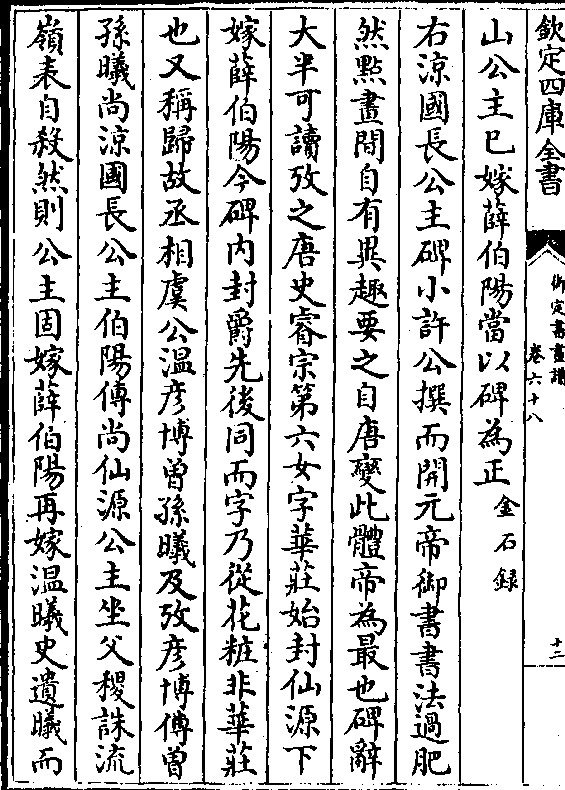 欽定四庫全書
御定書畫譜
卷六十八
十二
山公主已嫁薛伯陽當以碑為正金石録
右涼國長公主碑小許公撰而開元帝御書書法過肥
然㸃畫間自有異趣要之自唐變此體帝為最也碑辭
大半可讀攷之唐史睿宗第六女字華莊始封仙源下
嫁薛伯陽今碑内封爵先後同而字乃從花粧非華莊
也又稱歸故丞相虞公温彦博曽孫曦及攷彦博傳曽
孫曦尚涼國長公主伯陽傳尚仙源公主坐父稷誅流
嶺表自殺然則公主固嫁薛伯陽再嫁温曦史遺曦而